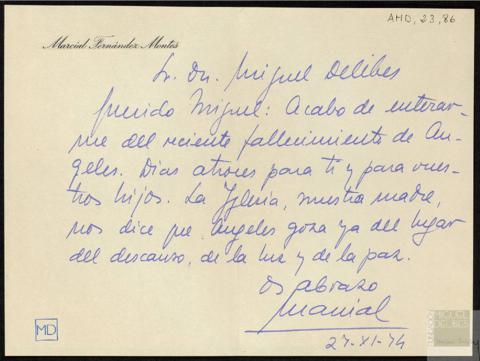 AMD, 23, 86
Marcial Fernández Montes
Sr. Dn. Miguel Delibes
Querido Miguel: Acabo de enterar-
me del reciente fallecimiento de An-
geles. Dias atroces para ti y para vues-
tros hijos. La Iglesia, nuestra madre,
nos dice que Angeles goza ya del lugar
del descanso, de la luz y de la paz.
Os abrazo
Marcial
27-XI-74
MD
MIGUEL
DELIBES